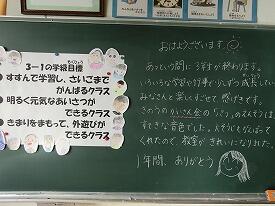 3-1の学級目標
がっきゅうもくひょう
● すすんで学習し、さいごまで
がんばるクラス
● 明るく元気なあいさつが
できるクラス
● きまりをまもって、外遊びが
できるクラス
おはようございます。
あっという間に3年が終わります。
いろいろな学習や行事で少しずつ成長してい
みなさんと楽しくすごせて感げきです。
きのうの
すてきな音色でした。
くれたので、教室がきれいになりました。
1年間、ありがとう